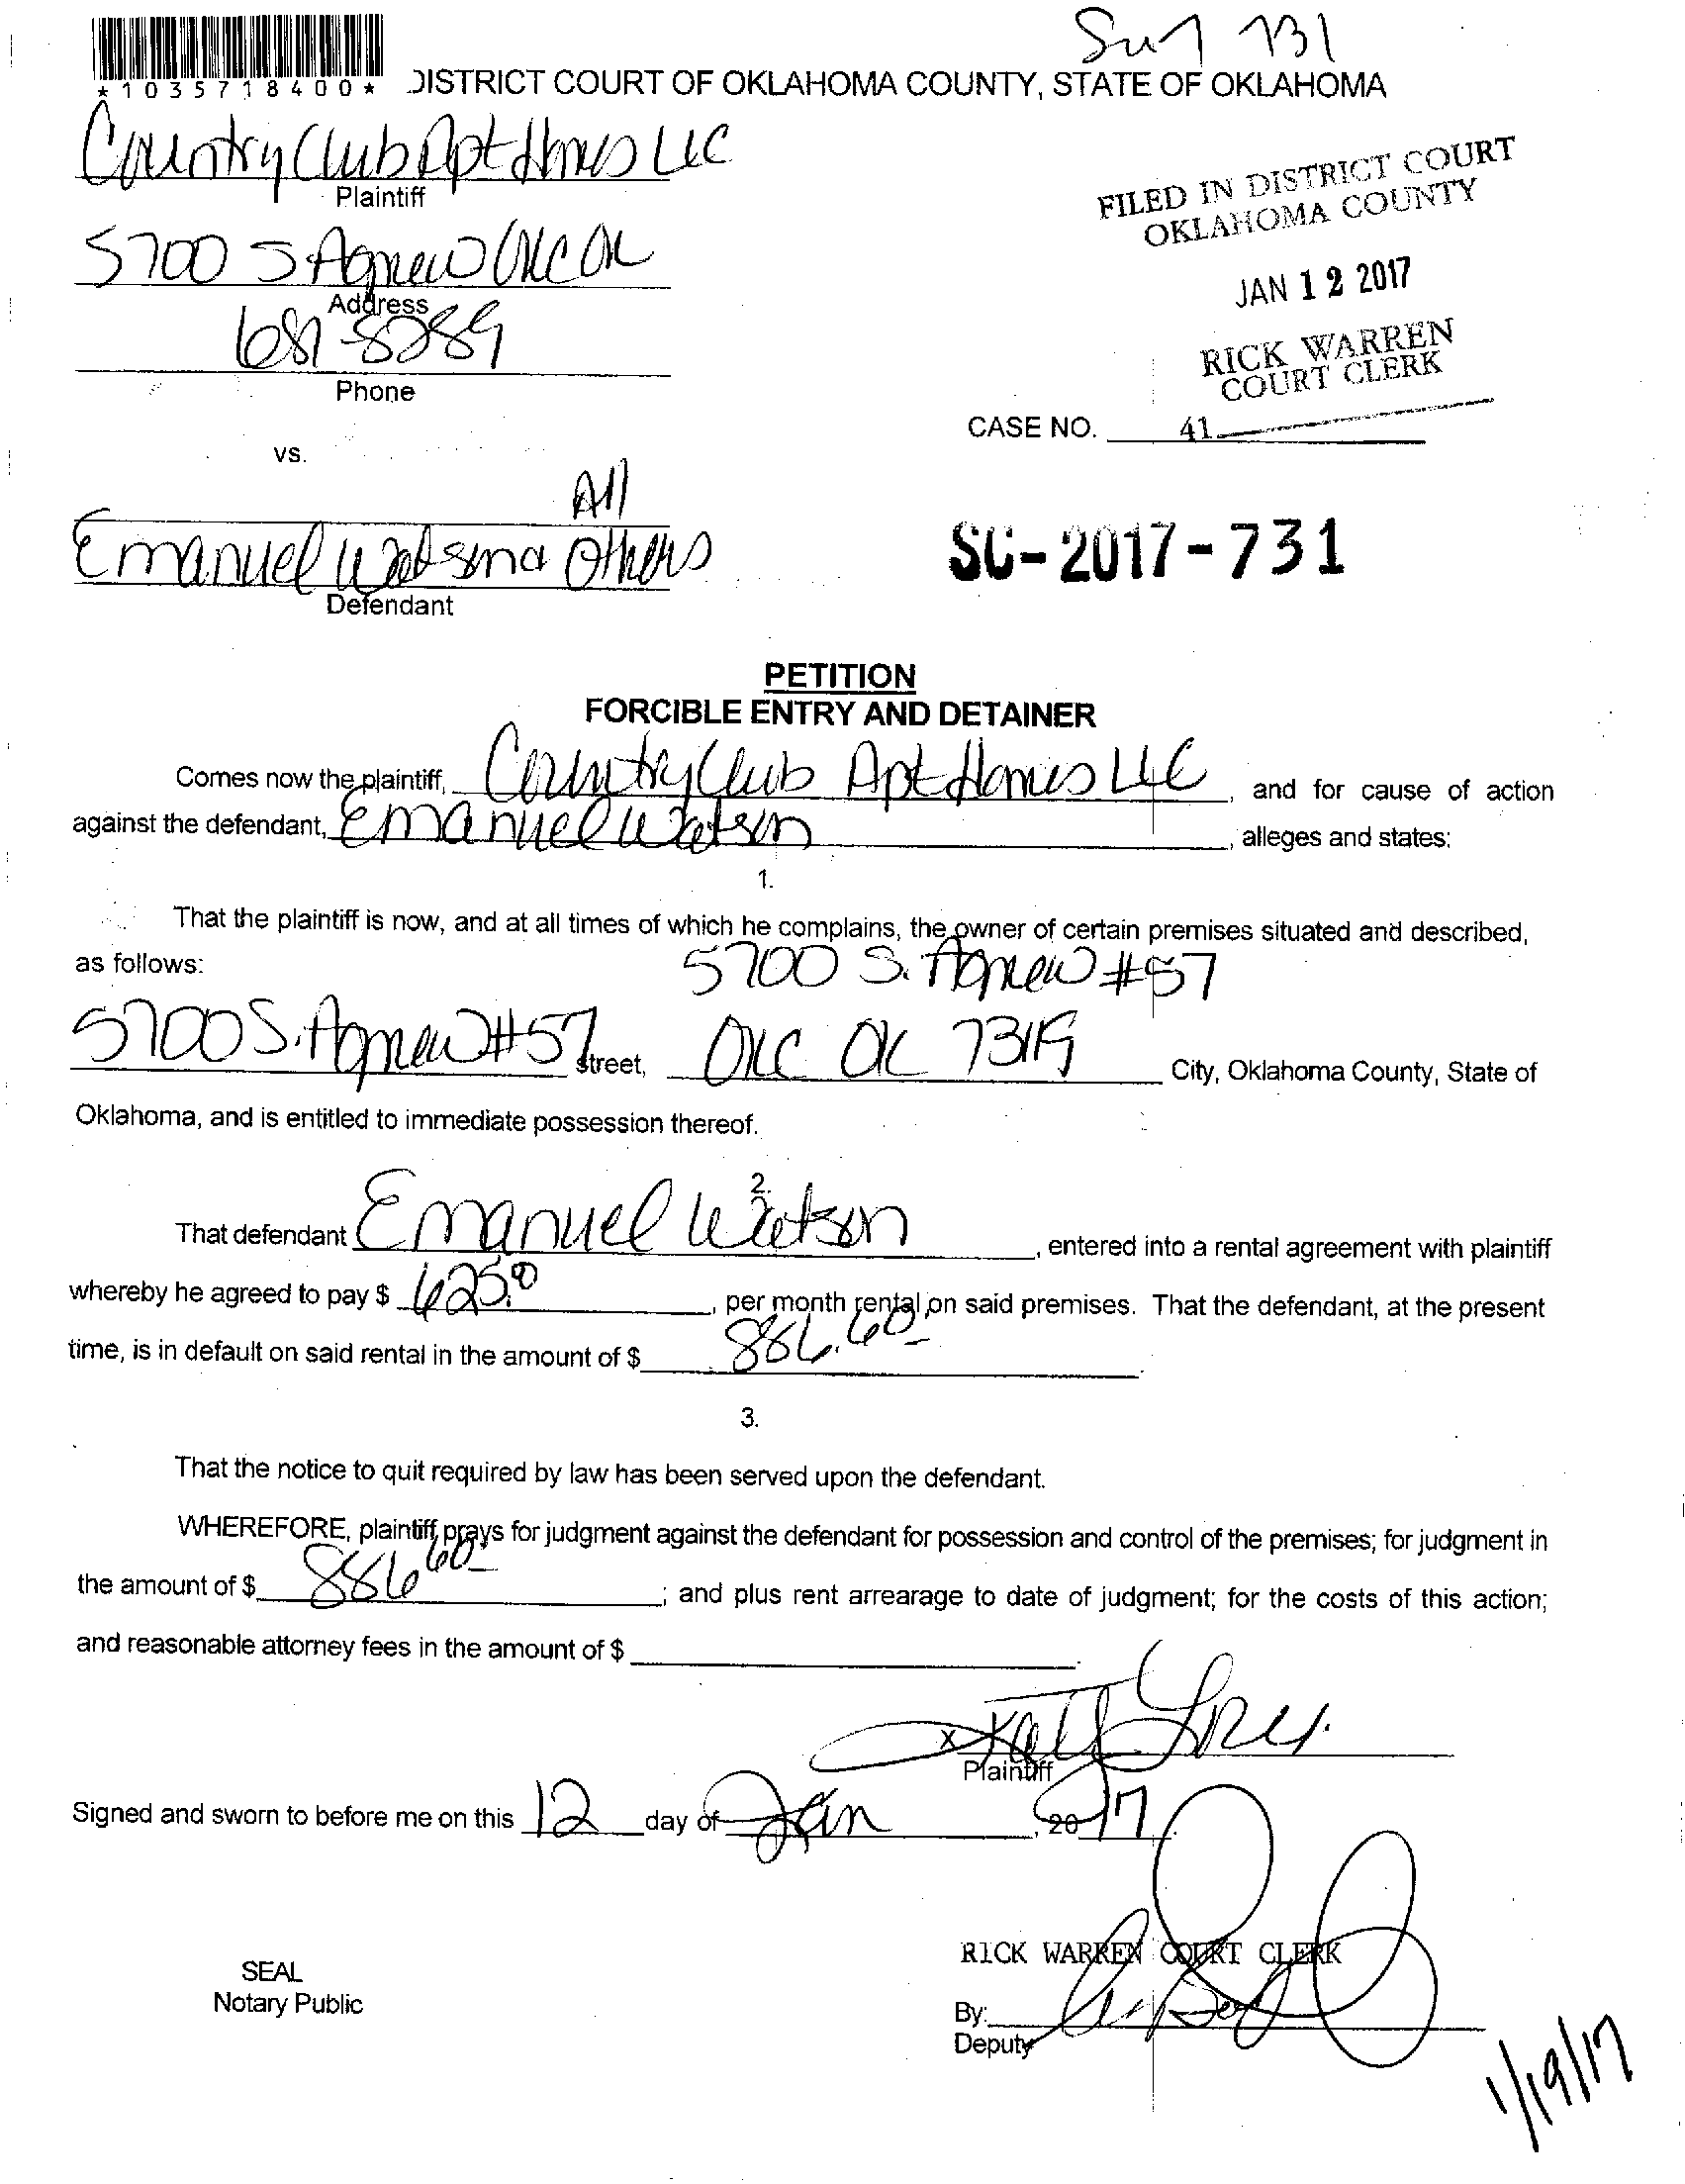 731
*1035718400*
DISTRICT COURT OF OKLAHOMA COUNTY, STATE OF OKLAHOMA
Country Club Apt Homes LLC
Plaintiff
FILED IN DISTRICT COURT
OKLAHOMA COUNTY
5700 S Agnew OKC OK
Address
JAN 12 2017
681-8289
Phone
RICK WARREN
COURT CLERK
CASE NO.
41
vs.
All
Emanuel Watson & Others
Defendant
SC-2017-731
PETITION
FORCIBLE ENTRY AND DETAINER
Comes now the plaintiff, Country Club Apt Homes LLC, and for cause of action
against the defendant, Emanuel Watson, alleges and states:
1.
That the plaintiff is now, and at all times of which he complains, the owner of certain premises situated and described,
as follows: 5700 S. Agnew #57
5700 S. Agnew #57 street, OKC OK 73119 City, Oklahoma County, State of
Oklahoma, and is entitled to immediate possession thereof.
2.
That defendant Emanuel Watson, entered into a rental agreement with plaintiff
whereby he agreed to pay $ 625.0, per month rental on said premises. That the defendant, at the present
time, is in default on said rental in the amount of $ 886.60.
3.
That the notice to quit required by law has been served upon the defendant.
WHEREFORE, plaintiff prays for judgment against the defendant for possession and control of the premises; for judgment in
the amount of $ 886 60; and plus rent arrearage to date of judgment; for the costs of this action;
and reasonable attorney fees in the amount of $ .
x
Plaintiff
Signed and sworn to before me on this 12 day of Jan, 2017.
RICK WARREN COURT CLERK
SEAL
Notary Public
By:
Deputy
1/19/17